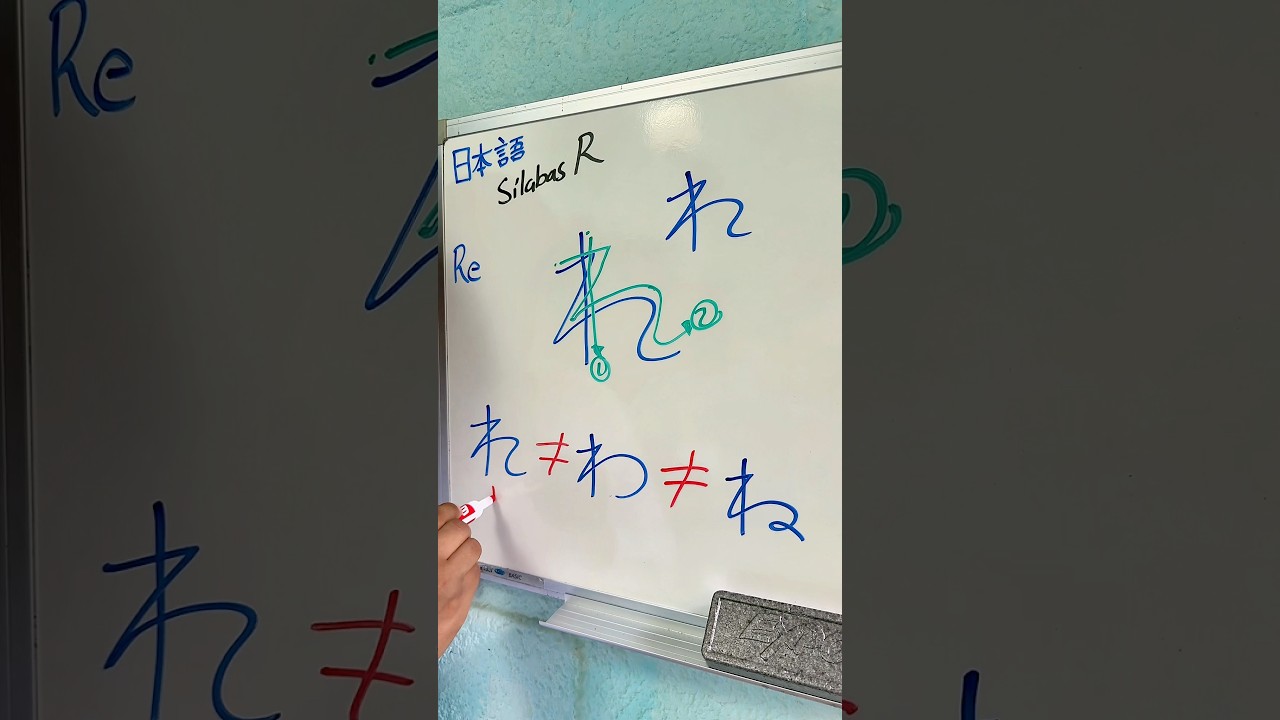 日本語
Sílabas R
れ
Re
れ
① ②
れ ≠ わ ≠ ね
EXPO